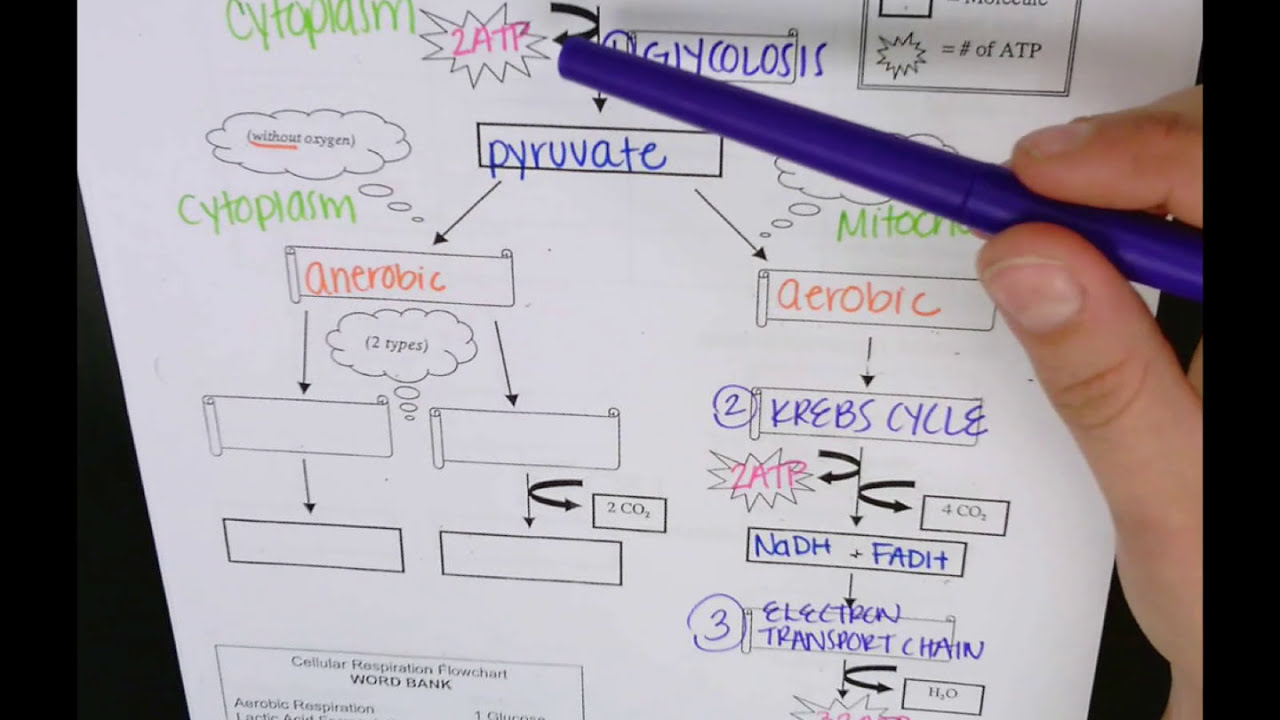 Cytoplasm
2ATP
1 GLYCOLOSIS
= Molecule
= # of ATP
(without oxygen)
pyruvate
Cytoplasm
anerobic
aerobic
(2 types)
2 KREBS CYCLE
2ATP
2 CO₂
4 CO₂
NaDH + FADH
3 ELECTRON
TRANSPORT CHAIN
H₂O
Cellular Respiration Flowchart
WORD BANK
Aerobic Respiration
1 Glucose
Lactic Acid
32 ATP